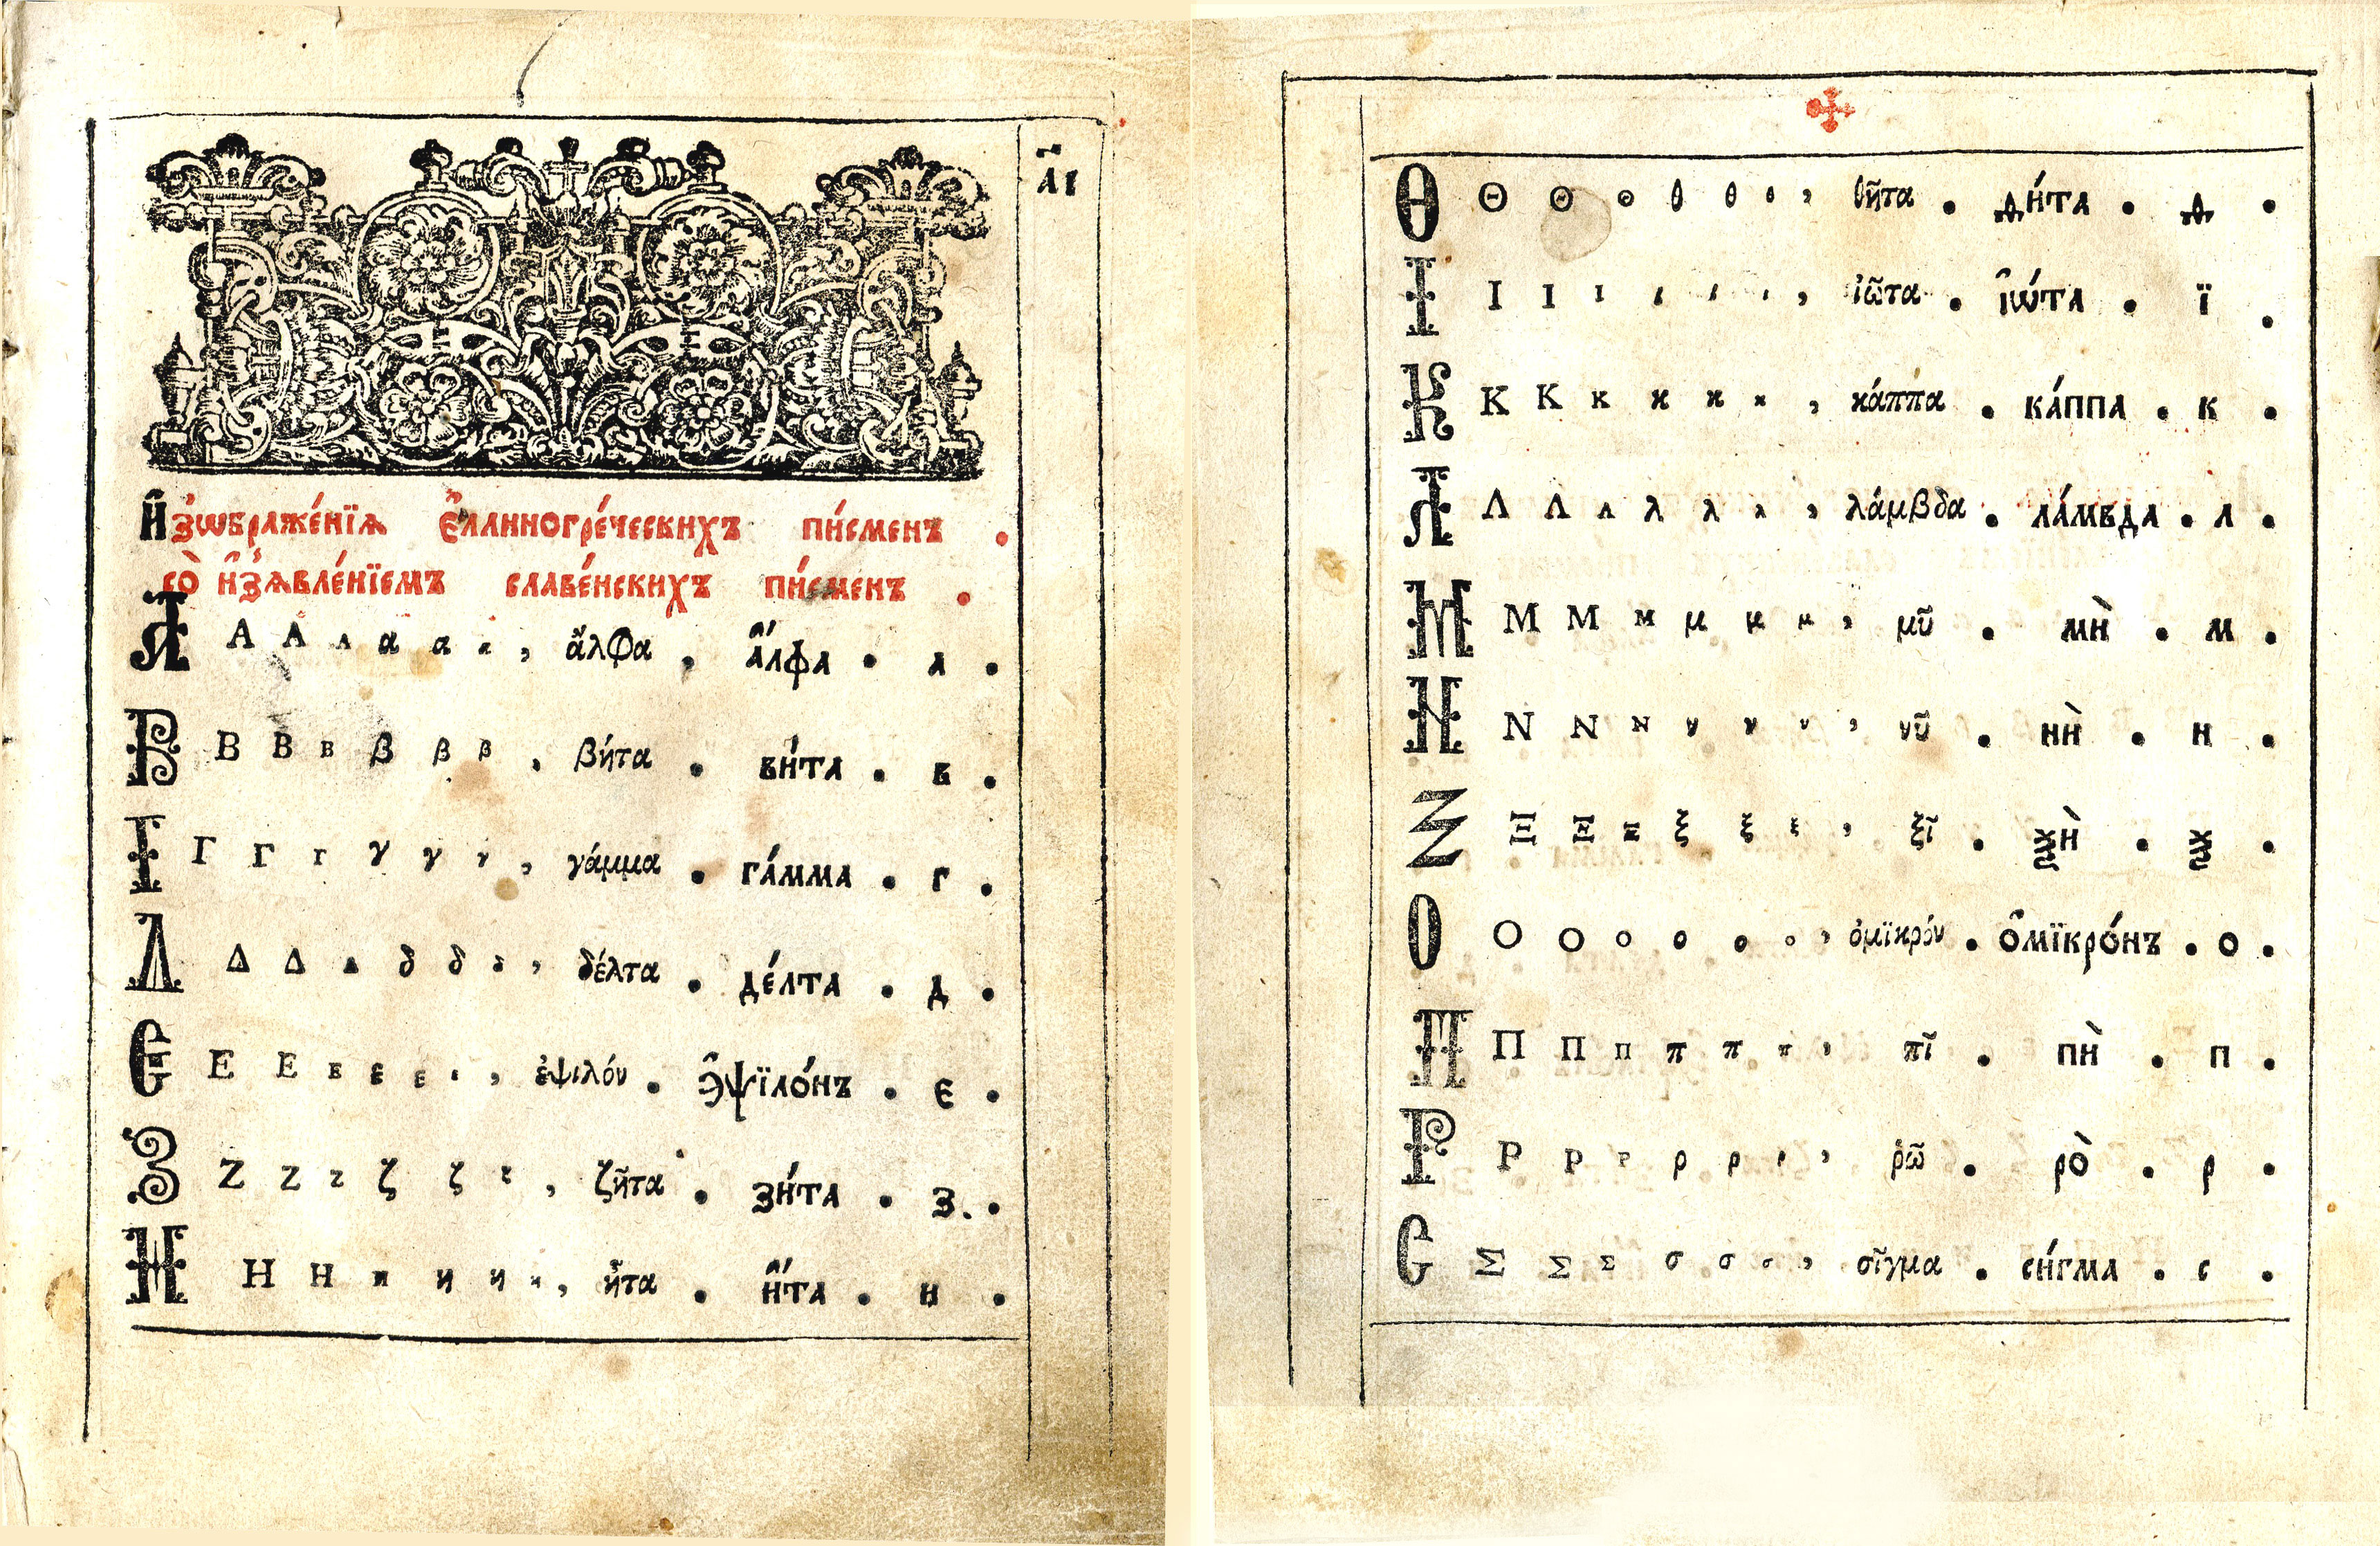 а҃і
И҆зѡбраже́нїѧ є҆ллиногре́ческихъ пи́сменъ .
со̀ и҆з̾ѧвле́нїемъ славе́нскихъ пи́сменъ .
Α Α Α α α α , ἄλφα , а҆́лфа . а .
Β Β Β Β β β β , βήτα . ви́та . в .
Γ Γ Γ Γ γ γ γ , γάμμα . га́мма . г .
Δ Δ Δ Δ δ δ δ , δέλτα . де́лта . д .
Ε Ε Ε Ε ε ε ε , ἐψιλόν . э҆ѱїло́нъ . є .
Ζ Ζ Ζ Ζ ζ ζ ζ , ζῆτα . зи́та . з .
Η Η Η Η η η η , ἦτα . и҆́та . и .
Θ Θ Θ Θ θ θ θ , θῆτα . ѳи́та . ѳ .
Ι Ι Ι Ι ι ι ι , ἰῶτα . і҆ѡ́та . ї .
Κ Κ Κ Κ κ κ κ , κάππα . ка́ппа . к .
Λ Λ Λ Λ λ λ λ , λάμβδα . ла́мвда . л .
Μ Μ Μ Μ μ μ μ , μῦ . мѝ . м .
Ν Ν Ν Ν ν ν ν , νῦ . нѝ . н .
Ξ Ξ Ξ Ξ ξ ξ ξ , ξῖ . ѯѝ . ѯ .
Ο Ο Ο Ο ο ο ο , ὀμϊκρόν . о҆мїкро́нъ . о .
Π Π Π Π π π π , πῖ . пѝ . п .
Ρ Ρ Ρ Ρ ρ ρ ρ , ῥῶ . ро̀ . р .
С Σ Σ Σ σ σ σ , σῖγμα . си́гма . с .